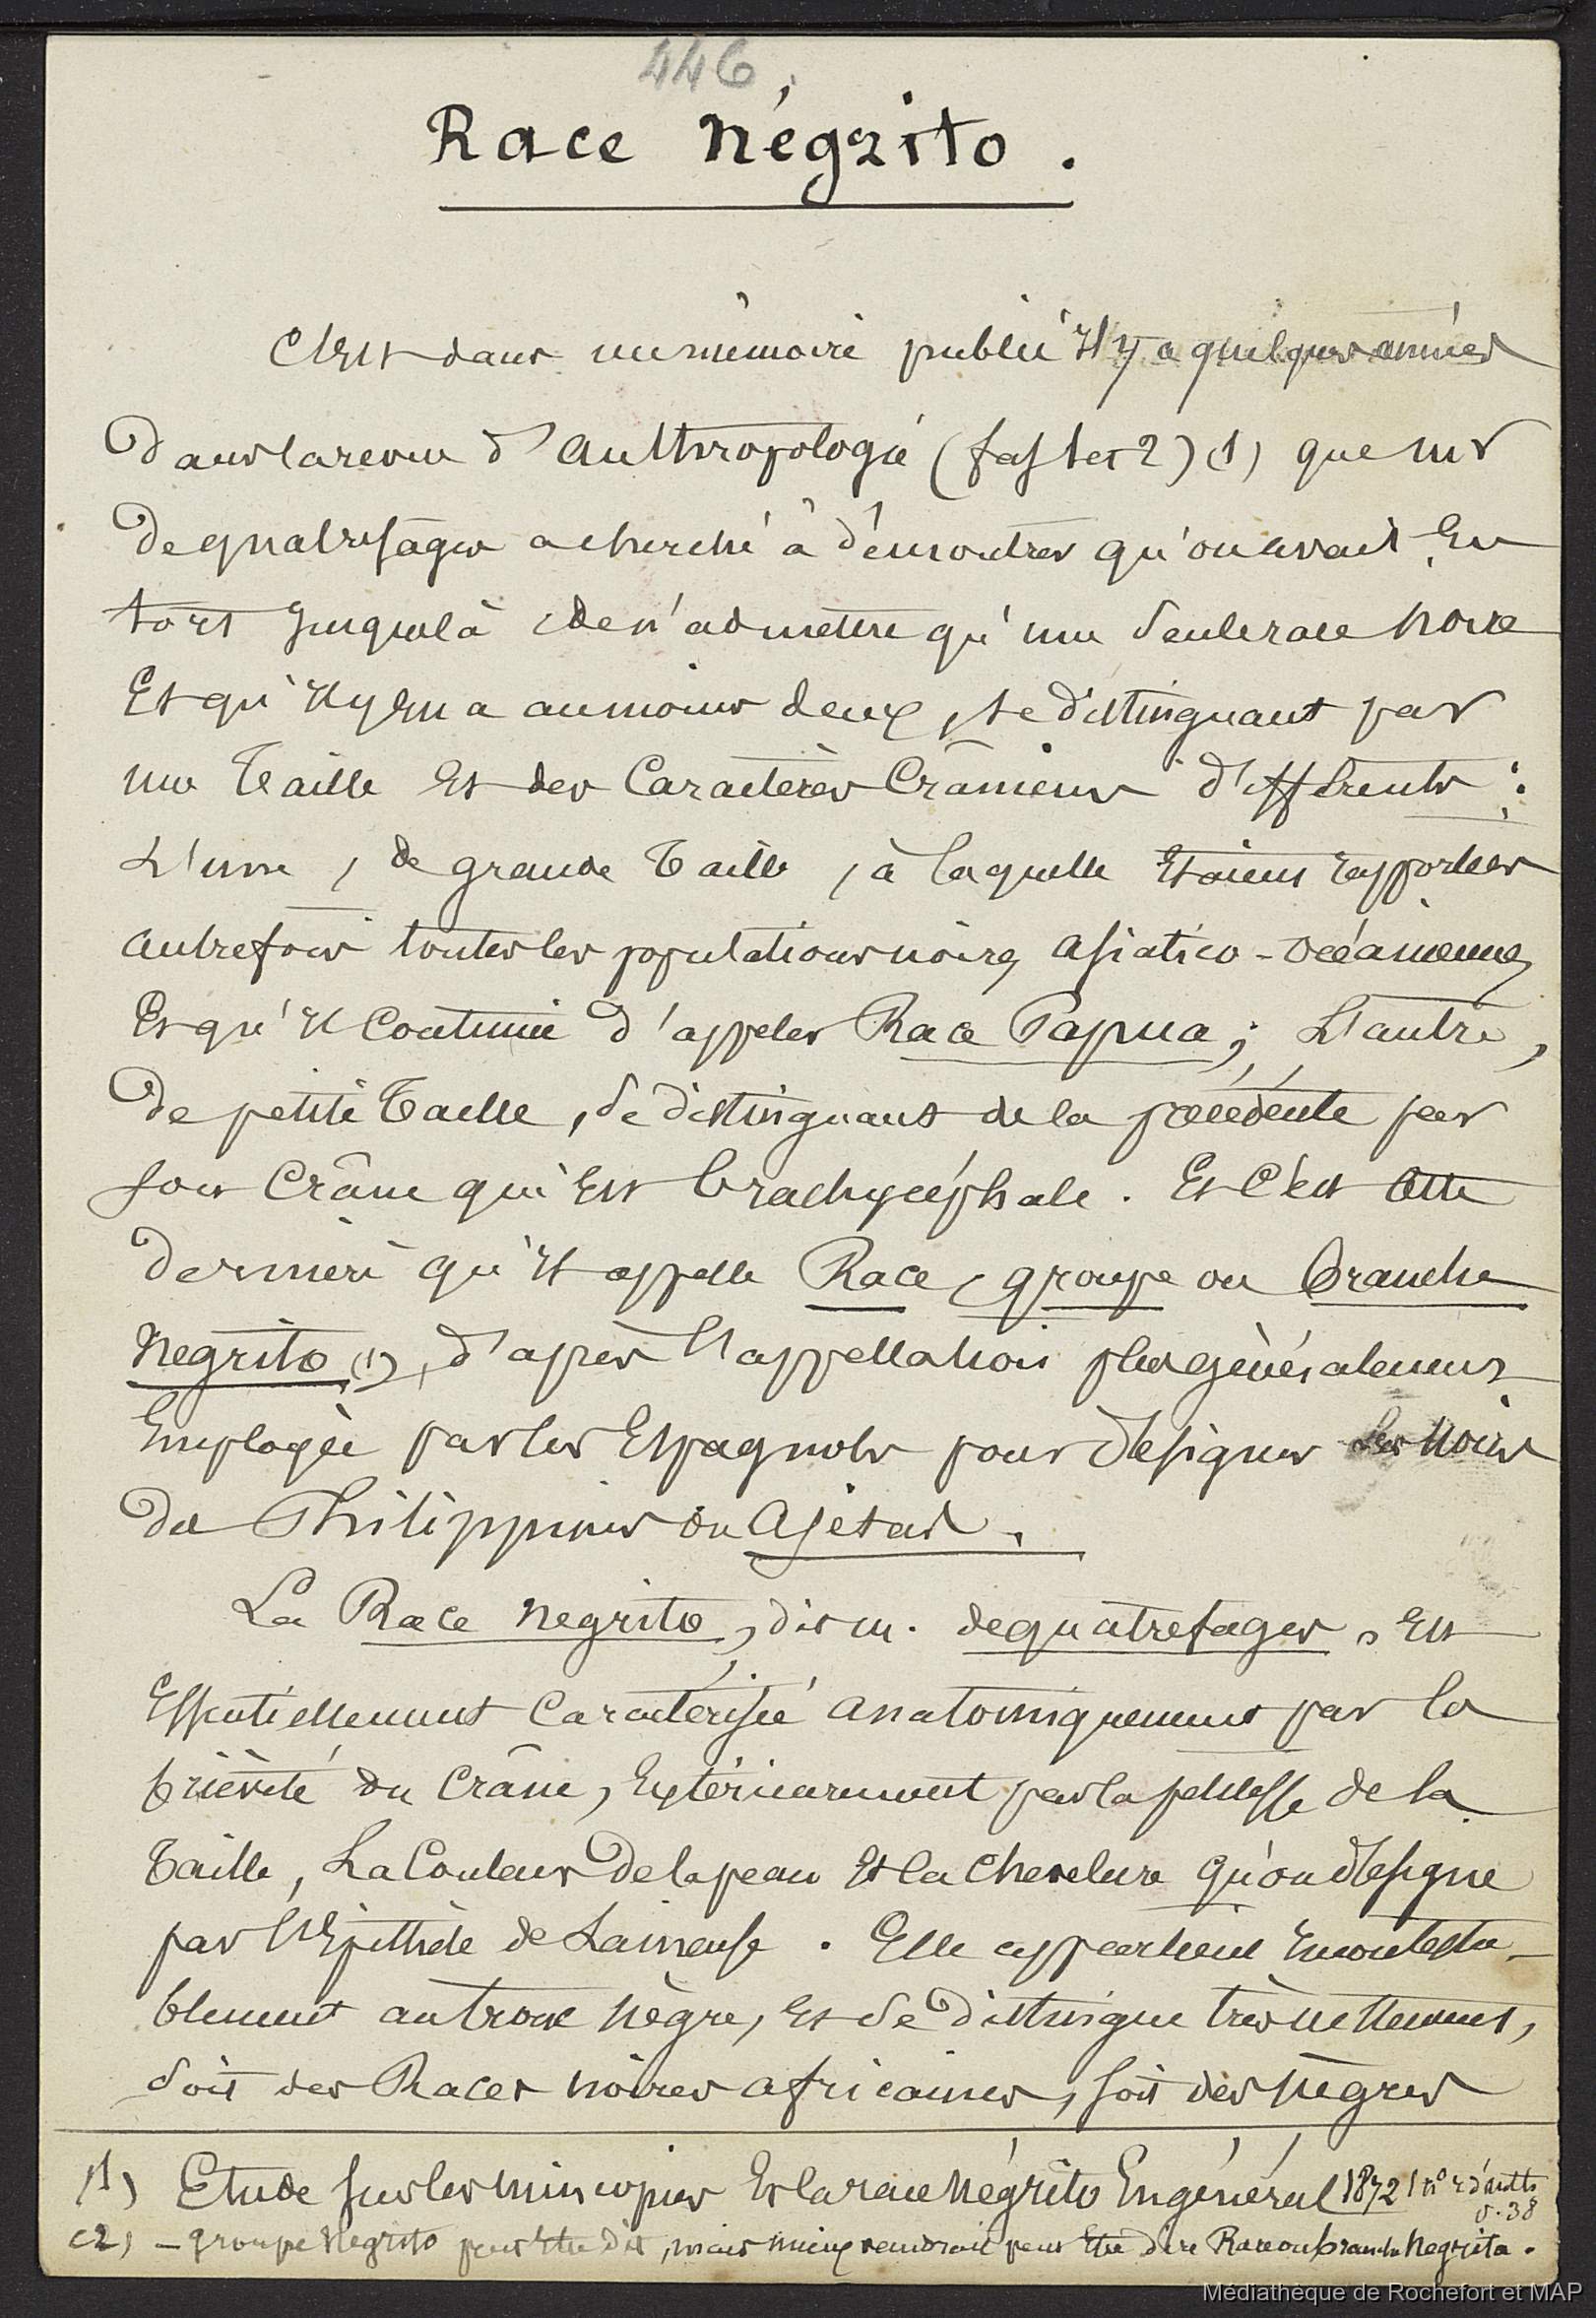 446
Race Négrito.
C'est dans un mémoire publié il y a quelques années
dans la revue d'Anthropologie (fas 1 et 2) (1) que mr
de quatrefages a cherché à démontrer qu'on avait eu
tort jusque là de n'admettre qu'une seule race noire
Et qu'il y en a au moins deux, se distinguant par
une taille et des Caractères Crâniens différents :
L'une, de grande taille, à laquelle Etaient rapportées
autrefois toutes les populations noires asiatico-océaniennes
Et qu'il Continue d'appeler Race Papua ; L'autre,
de petite taille, se distinguant de la précédente par
son Crâne qui Est brachycéphale. Et C'est Cette
dernière qu'il appelle Race, groupe ou branche
Negrito (2), d'après l'appellation plus généralement
Employée par les Espagnols pour désigner les Noirs
des Philippines ou Ajetas.
La Race negrito, dit m. de quatrefages, Est
Essentiellement Caractérisée anatomiquement par la
brièveté du Crâne, Extérieurement par la petitesse de la
taille, La Couleur de la peau Et la Chevelure qu'on désigne
par l'Epithète de Laineuse. Elle appartient incontesta-
blement au tronc nègre, Et se distingue très nettement,
soit des Races noires africaines, soit des Nègres
(1) Etude sur les mincopies Et la race Négrito En général 1872
(2) - groupe Negrito peut Etre dit, mais mieux vaudrait peut Etre dire Race ou branche Negrita.
Médiathèque de Rochefort et MAP